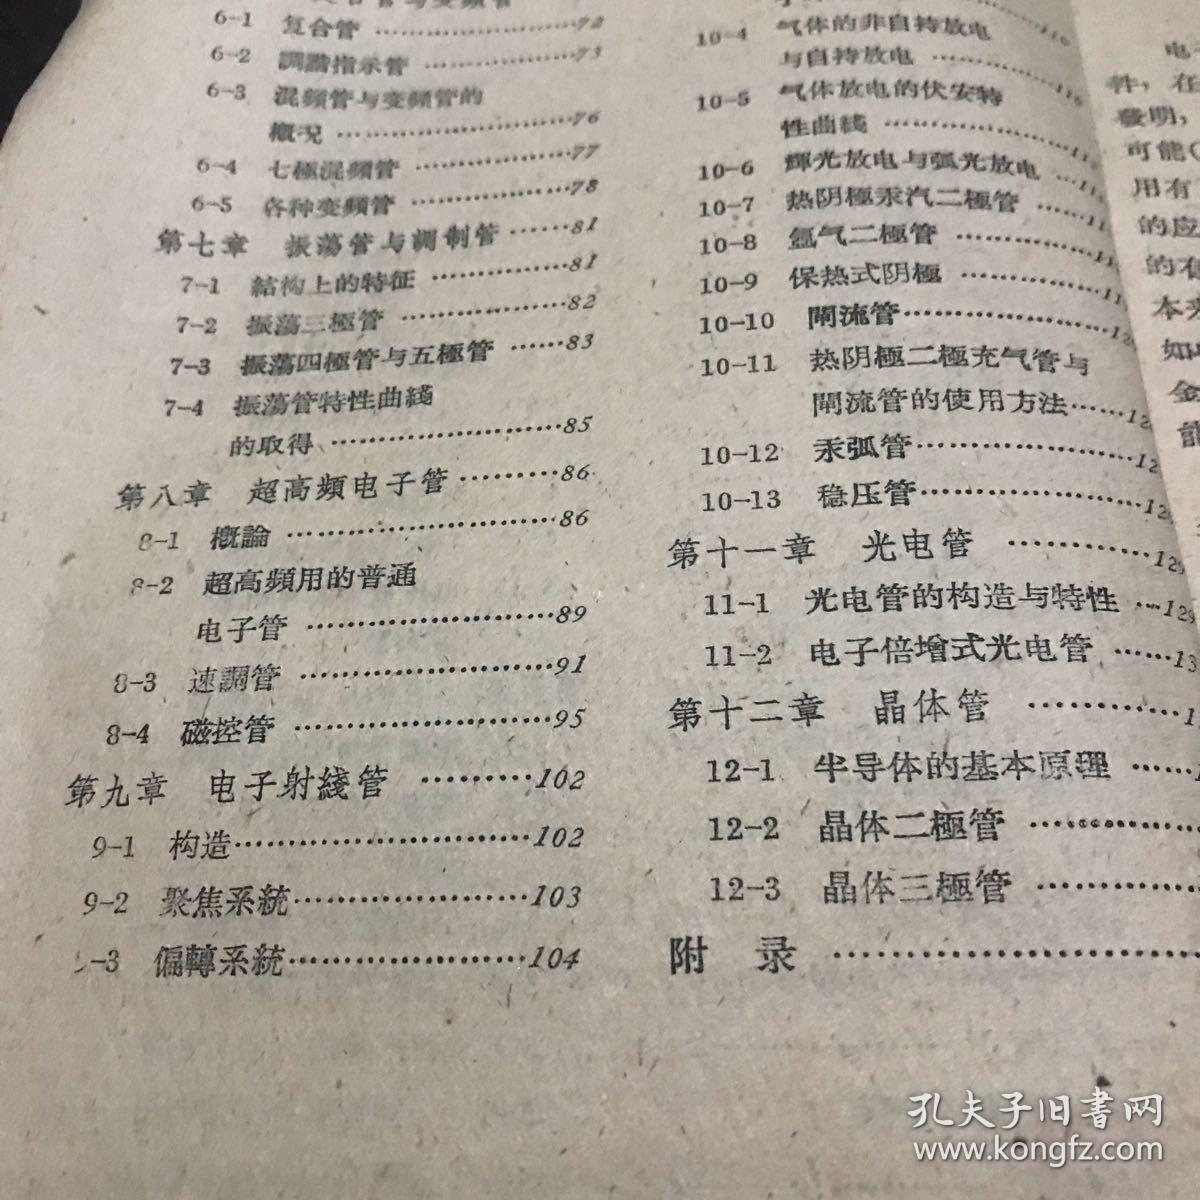 6-1 复合管 ………… 72
6-2 調諧指示管 ………… 73
6-3 混頻管与变頻管的
概况 ………… 76
6-4 七極混頻管 ………… 77
6-5 各种变頻管 ………… 78
第七章 振蕩管与調制管 …… 81
7-1 結构上的特征 ………… 81
7-2 振蕩三極管 ………… 82
7-3 振蕩四極管与五極管 …… 83
7-4 振蕩管特性曲綫
的取得 ………… 85
第八章 超高頻电子管 ……… 86
8-1 概論 ………… 86
8-2 超高頻用的普通
电子管 ………… 89
8-3 速調管 ………… 91
8-4 磁控管 ………… 95
第九章 电子射綫管 ……… 102
9-1 构造 ………… 102
9-2 聚焦系統 ………… 103
-3 偏轉系統 ………… 104
10-4 气体的非自持放电
与自持放电 …………
10-5 气体放电的伏安特
性曲綫 …………
10-6 輝光放电与弧光放电 …
10-7 热阴極汞汽二極管 ……
10-8 氬气二極管 …………
10-9 保热式阴極 …………
10-10 閘流管 …………
10-11 热阴極二極充气管与
閘流管的使用方法 ……
10-12 汞弧管 …………
10-13 稳压管 …………
第十一章 光电管 …………
11-1 光电管的构造与特性 … 129
11-2 电子倍增式光电管 …… 13
第十二章 晶体管 …………
12-1 半导体的基本原理 ……
12-2 晶体二極管 …………
12-3 晶体三極管 …………
附 录 …………
件，在
發明，
可能(
用有
的应
本来
金
能
孔夫子旧书网
www.kongfz.com